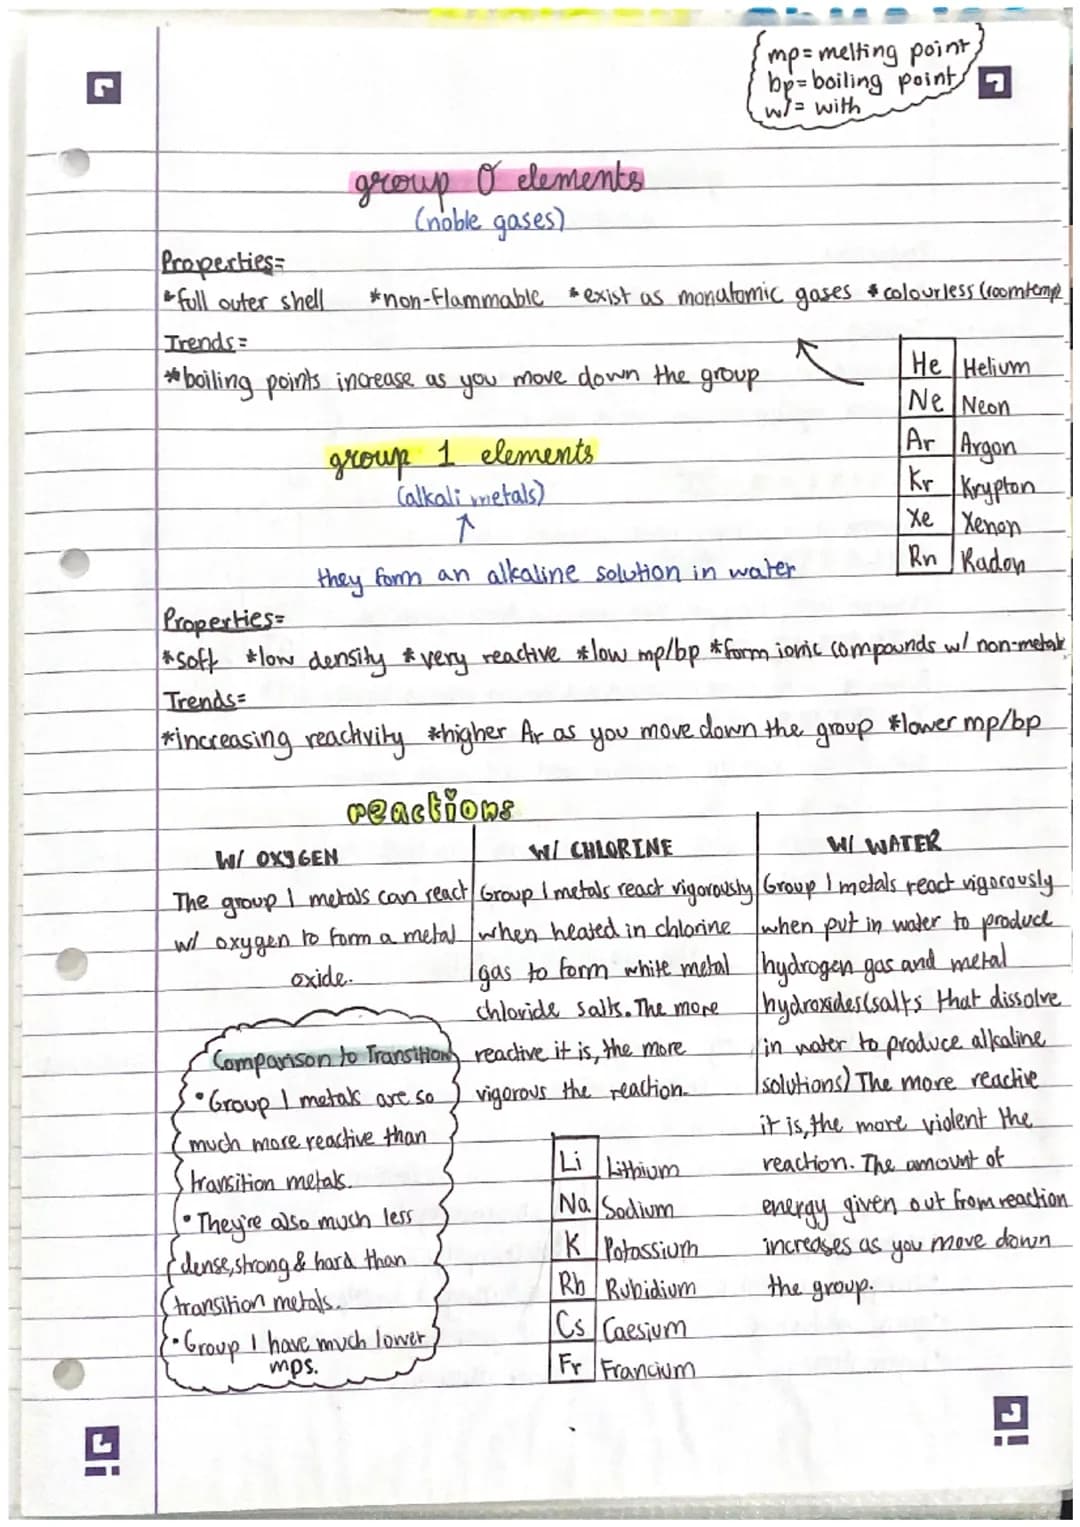 mp= melting point
bp= boiling point
w/= with
group 0 elements
(noble gases)
Properties=
*full outer shell *non-flammable *exist as monatomic gases *colourless (roomtemp
Trends=
*boiling points increase as you move down the group
He Helium
Ne Neon
Ar Argon
Kr Krypton
Xe Xenon
Rn Radon
group 1 elements
(alkali metals)
they form an alkaline solution in water
Properties=
*soft *low density *very reactive *low mp/bp *form ionic compounds w/ non-metals
Trends=
*increasing reactivity *higher Ar as you move down the group *lower mp/bp
reactions
W/ OXYGEN
The group 1 metals can react
w/ oxygen to form a metal
oxide.
W/ CHLORINE
Group 1 metals react vigorously
when heated in chlorine
gas to form white metal
chloride salts. The more
reactive it is, the more
vigorous the reaction.
W/ WATER
Group 1 metals react vigorously
when put in water to produce
hydrogen gas and metal
hydroxides(salts that dissolve
in water to produce alkaline
solutions) The more reactive
it is, the more violent the
reaction. The amount of
energy given out from reaction
increases as you move down
the group.
Comparison to Transition
• Group 1 metals are so
much more reactive than
transition metals.
• They're also much less
dense, strong & hard than
transition metals.
• Group 1 have much lower
mps.
Li Lithium
Na Sodium
K Potassium
Rb Rubidium
Cs Caesium
Fr Francium